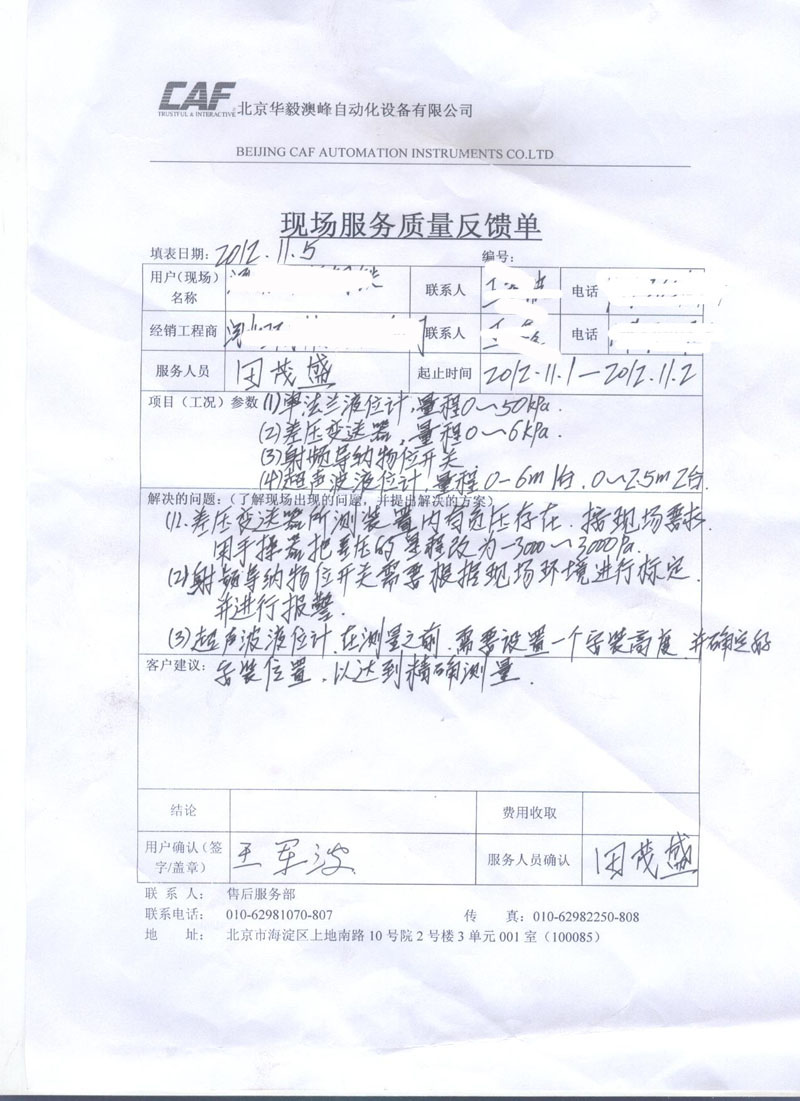 CAF
TRUSTFUL & INTERACTIVE
北京华毅澳峰自动化设备有限公司
BEIJING CAF AUTOMATION INSTRUMENTS CO.LTD
现场服务质量反馈单
填表日期：2012.11.5 编号：
用户（现场）名称 联系人 电话
经销工程商 联系人 电话
服务人员 田茂盛 起止时间 2012.11.1—2012.11.2
项目（工况）参数 (1)单法兰液位计，量程0～50kPa.
(2)差压变送器，量程0～6kPa.
(3)射频导纳物位开关
(4)超声波液位计，量程0-6m 1台，0～2.5m 2台.
解决的问题：（了解现场出现的问题，并提出解决的方案）
(1).差压变送器所测装置内有压存在.按现场要求.
用手操器把差压的量程改为-3000～3000Pa.
(2)射频导纳物位开关需要根据现场环境进行标定.
并进行报警.
(3)超声波液位计.在测量之前.需要设置一个安装高度.并确定好
客户建议： 安装位置.以达到精确测量.
结论 费用收取
用户确认（签字/盖章） 王军波 服务人员确认 田茂盛
联 系 人： 售后服务部
联系电话： 010-62981070-807 传 真：010-62982250-808
地 址： 北京市海淀区上地南路 10 号院 2 号楼 3 单元 001 室（100085）